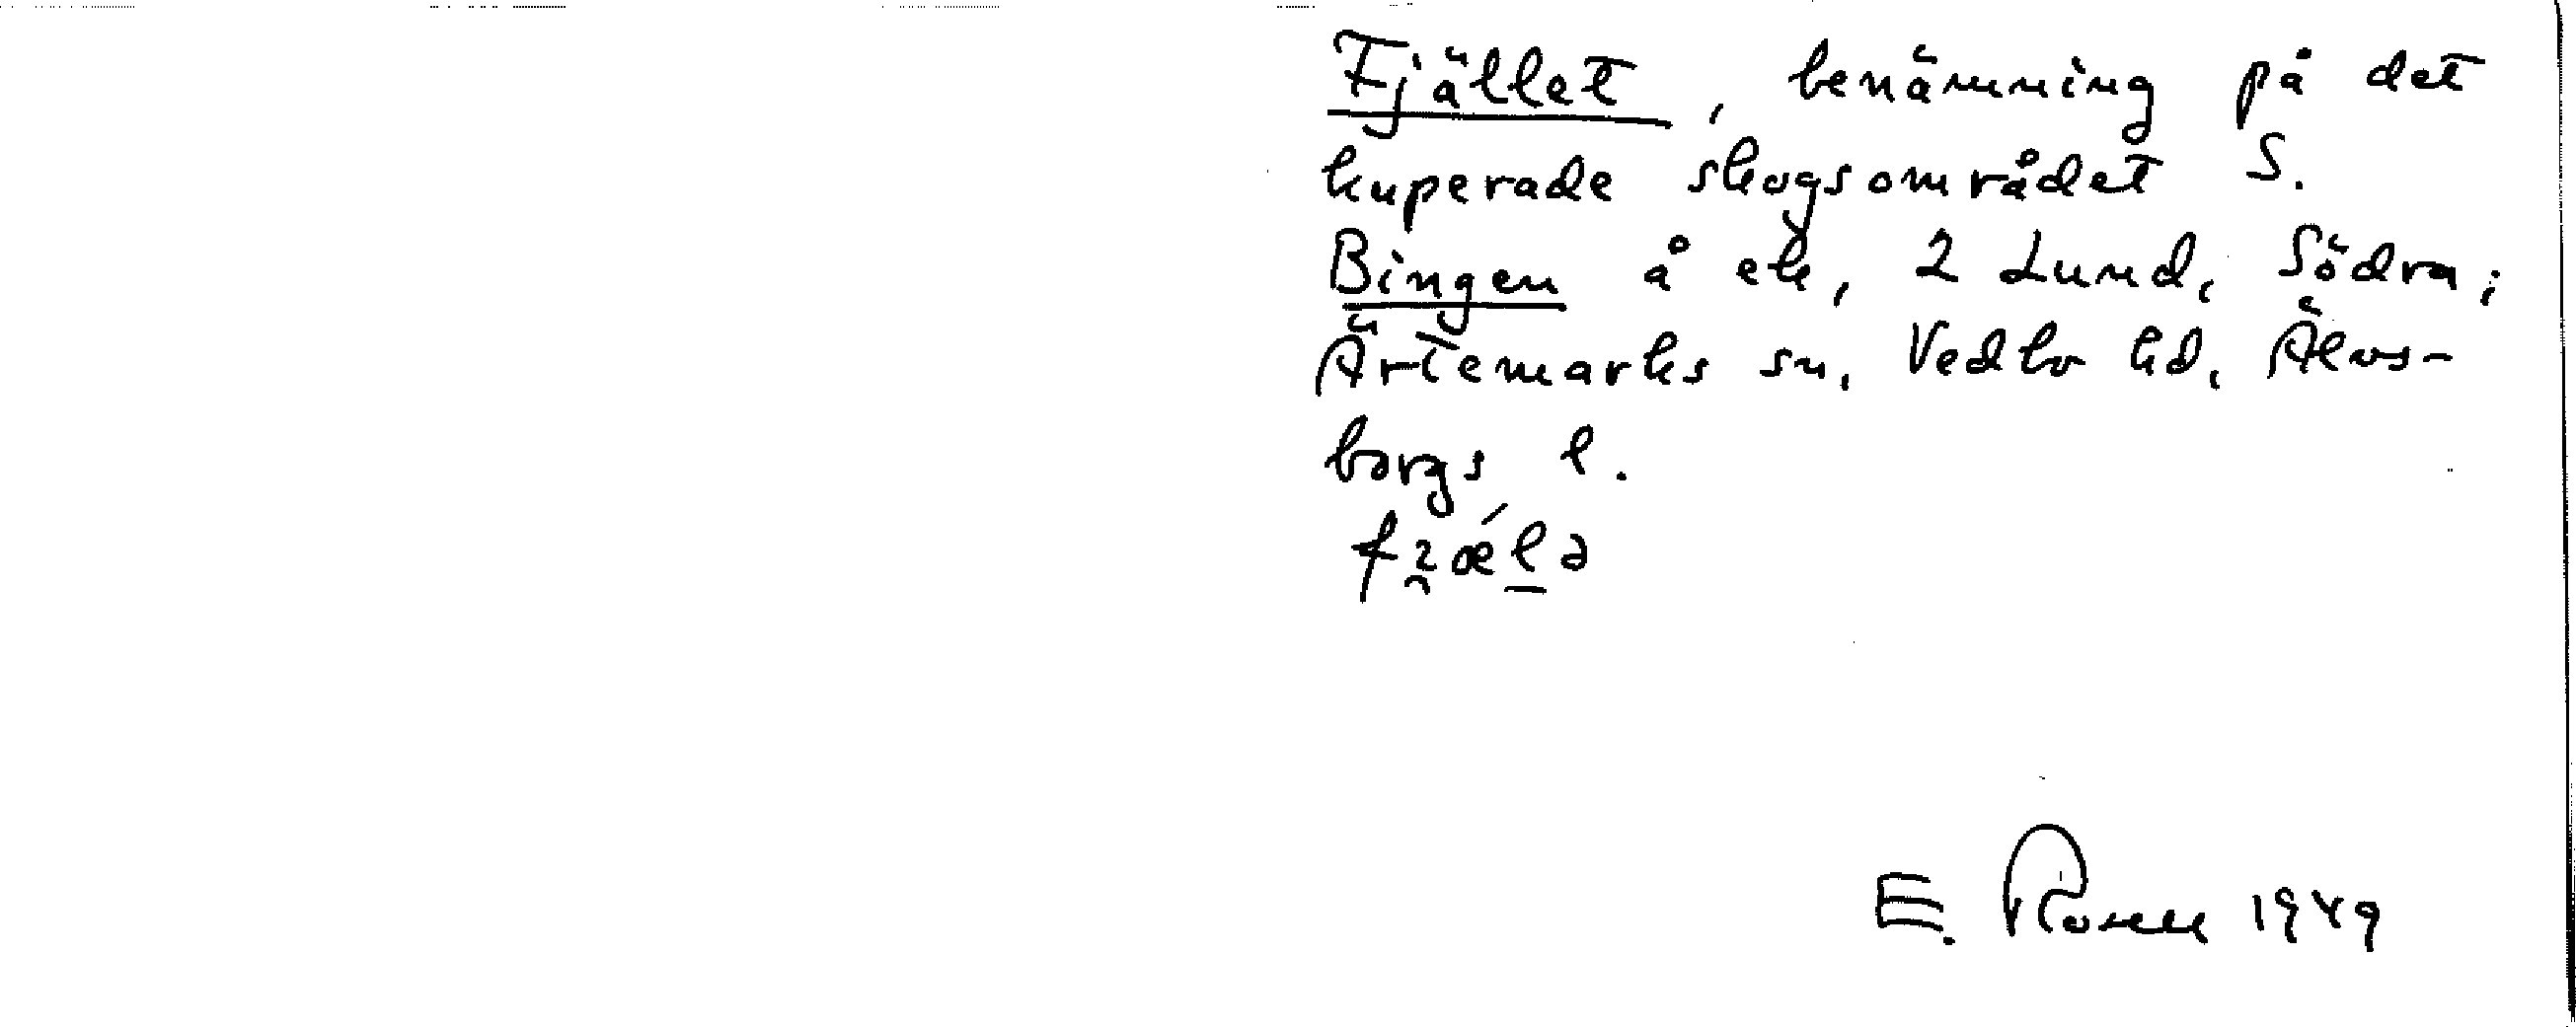 Fjället, benämning på det
kuperade skogsområdet S.
Bingen å ek, 2 Lund, Södra,
Ärtemarks sn, Vedbo hd, Älvs-
borgs l.
E. Rosell 1949